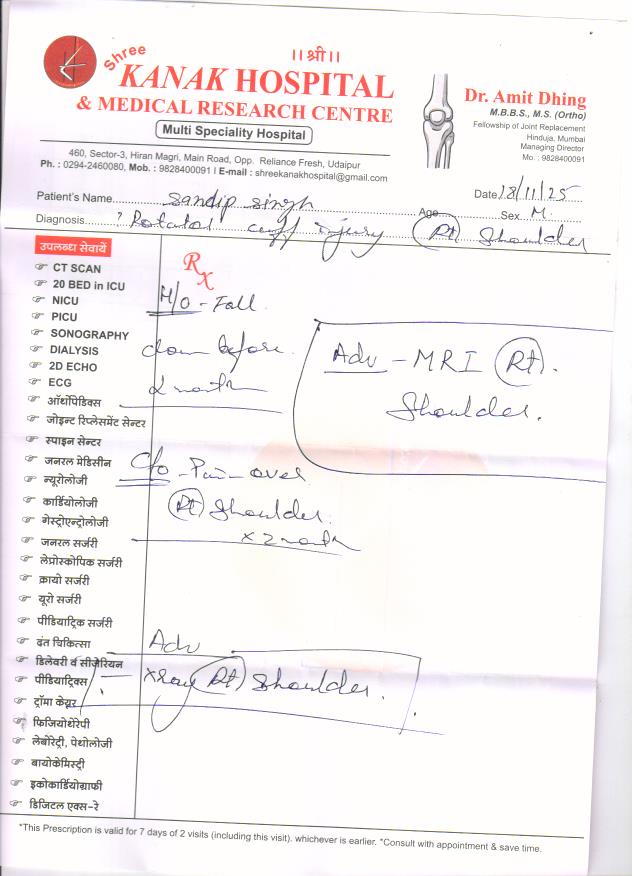 ।।श्री।।
Shree
KANAK HOSPITAL
& MEDICAL RESEARCH CENTRE
Multi Speciality Hospital
460, Sector-3, Hiran Magri, Main Road, Opp. Reliance Fresh, Udaipur
Ph. : 0294-2460080, Mob. : 9828400091 I E-mail : shreekanakhospital@gmail.com
Dr. Amit Dhing
M.B.B.S., M.S. (Ortho)
Fellowship of Joint Replacement
Hinduja, Mumbai
Managing Director
Mo. : 9828400091
Patient's Name Sandip Singh Date 18/11/25
Age Sex M.
Diagnosis ? Rotator cuff injury Rt Shoulder
उपलब्ध सेवायें
CT SCAN
20 BED in ICU
NICU
PICU
SONOGRAPHY
DIALYSIS
2D ECHO
ECG
ऑर्थोपेडिक्स
जोइन्ट रिप्लेसमेंट सेन्टर
स्पाइन सेन्टर
जनरल मेडिसीन
न्यूरोलोजी
कार्डियोलोजी
गेस्ट्रोएन्ट्रोलोजी
जनरल सर्जरी
लेप्रोस्कोपिक सर्जरी
क्रायो सर्जरी
यूरो सर्जरी
पीडियाट्रिक सर्जरी
दंत चिकित्सा
डिलेवरी व सीजेरियन
पीडियाट्रिक्स
ट्रॉमा केयर
फिजियोथेरेपी
लेबोरेट्री, पेथोलोजी
बायोकेमिस्ट्री
इकोकार्डियोग्राफी
डिजिटल एक्स-रे
Rx
H/o - Fall
down before
2 month
C/o - Pain over
Rt Shoulder
x 2 month
Adv - MRI Rt.
Shoulder.
Adv
Xray Rt Shoulder.
*This Prescription is valid for 7 days of 2 visits (including this visit). whichever is earlier. *Consult with appointment & save time.